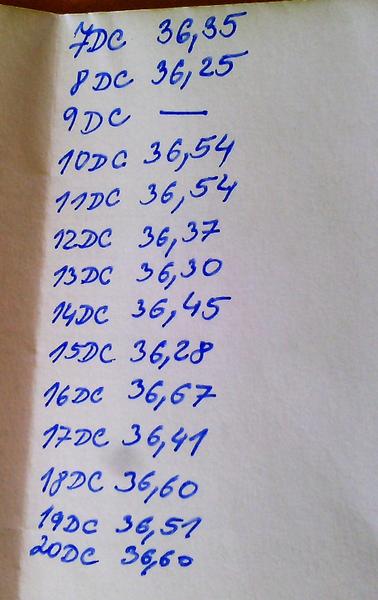 7DC 36,35
8DC 36,25
9DC —
10DC 36,54
11DC 36,54
12DC 36,37
13DC 36,30
14DC 36,45
15DC 36,28
16DC 36,67
17DC 36,41
18DC 36,60
19DC 36,51
20DC 36,60